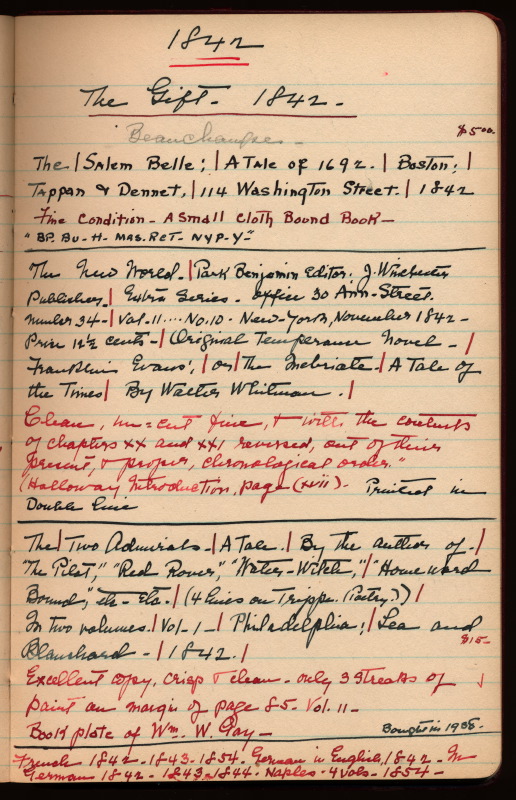 1842
The Gift - 1842 -
Beauchampe -
$5.00
The | Salem Belle; | A Tale of 1692. | Boston; |
Tappan & Dennet, | 114 Washington Street. | 1842
Fine Condition - A Small Cloth Bound Book -
"BP. BU - H - MAS. RET - NYP - Y -"
The New World - | Park Benjamin Editor. J. Winchester
Publisher. | Extra Series - office 30 Ann-Street.
Number 34 - | Vol - 11 .... No. 10 - New-York, November 1842 -
Price 12½ cents - | Original Temperance Novel - |
Franklin Evans; | or | The Inebriate - | A Tale of
the Times | By Walter Whitman . |
Clean, un=cut fine, & with the contents
of chapters XX and XXI reversed, out of their
present, & proper, chronological order."
(Holloway Introduction, page (xvii) - Printed in
Double line
The | Two Admirals - | A Tale. | By the author of - |
"The Pilot," "Red Rover," "Water-Witch," | "Homeward
Bound," Etc - Etc. | (4 lines on Trippe. (Poetry?) ) |
In two volumes. | Vol - 1 - | Philadelphia; | Lea and
Blanchard - | 1842. |
$15-
Excellent copy, crisp & clean - only 3 streaks of
paint on margin of page 85 - Vol. 11 -
Book plate of Wm. W. Gay -
Bought in 1938 -
French 1842 - 1843 - 1854 - German in English, 1842 - In
German 1842 - 1843 - 1844 - Naples - 4 Vols - 1854 -